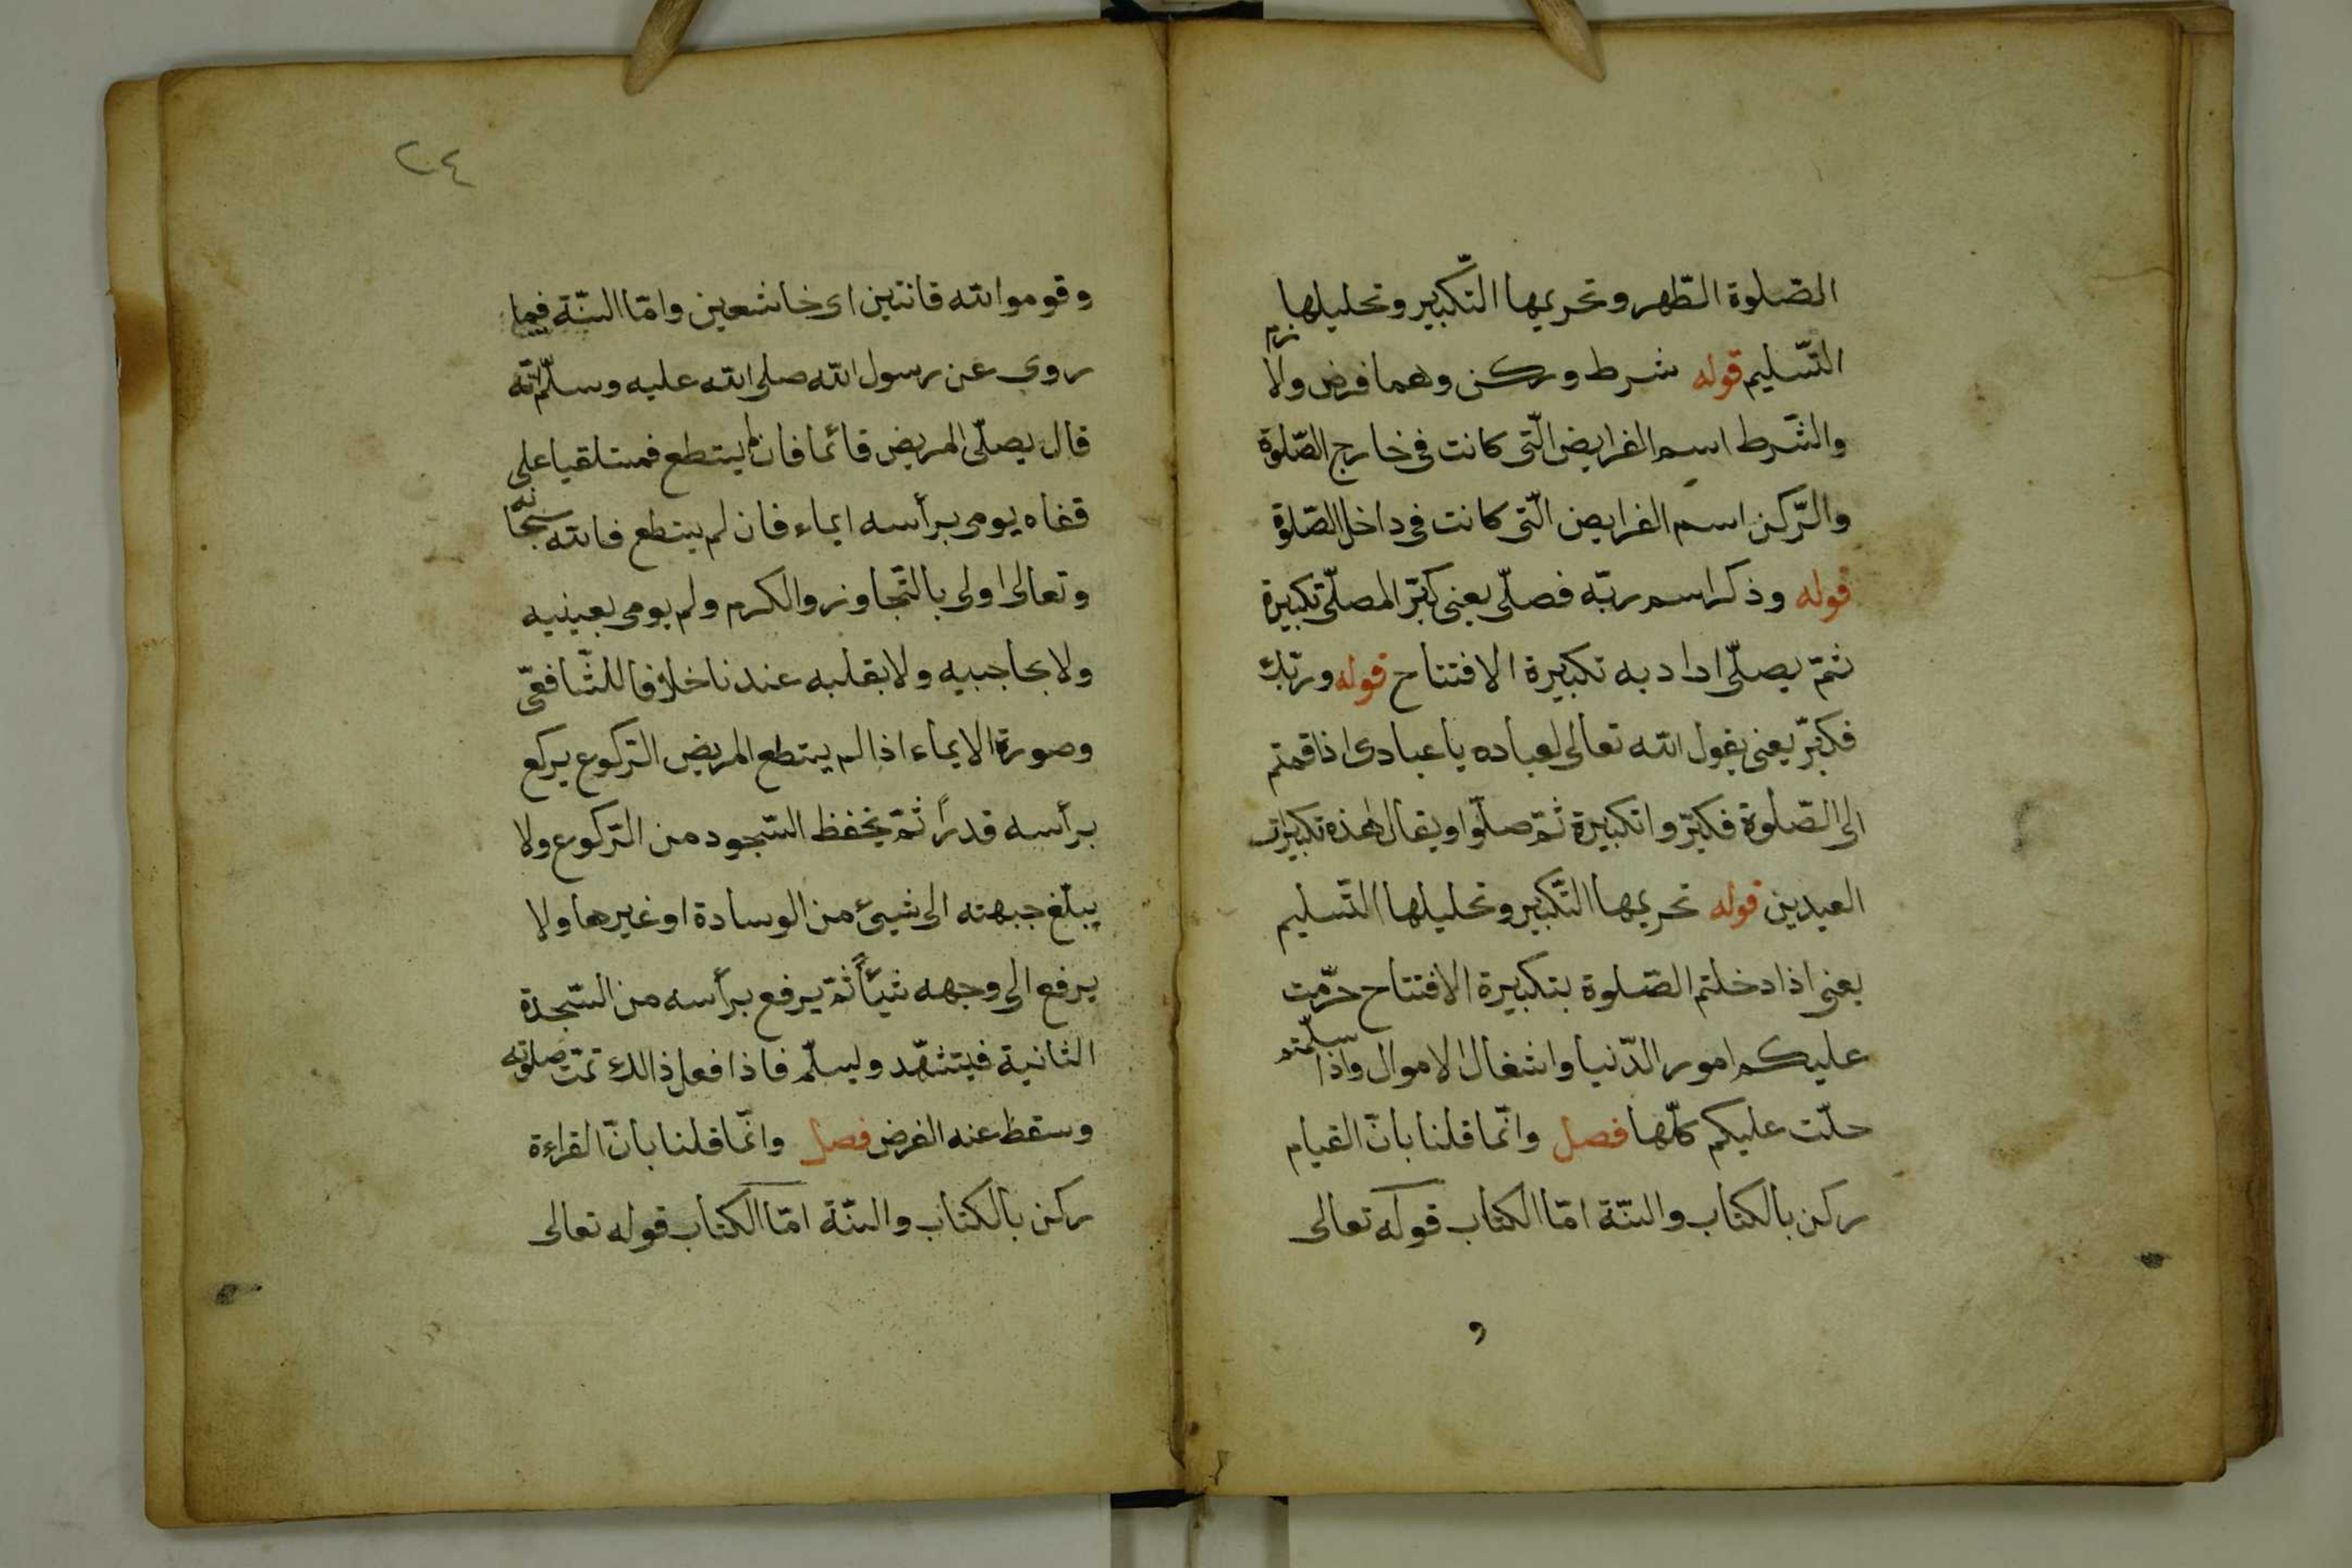 الصّلوة الطّهر وتحريمها التّكبير وتحليلها
التّسليم قوله شرط وركن وهما فرض ولازم
والشّرط اسم الفرايض الّتى كانت فى خارج الصّلوة
والرّكن اسم الفرايض الّتى كانت فى داخل الصّلوة
قوله وذكر اسم ربّه فصلّى يعنى كبّر المصلّى تكبيرة
ثمّ يصلّى اداد به تكبيرة الافتتاح قوله وربّك
فكبّر يعنى يقول الله تعالى لعباده يا عبادى اذا قمتم
الى الصّلوة فكبّروا تكبيرة ثمّ صلّوا ويقال هذه تكبيرات
العيدين قوله تحريمها التّكبير وتحليلها التّسليم
يعنى اذا دخلتم الصّلوة بتكبيرة الافتتاح حرّمت
عليكم امور الدّنيا واشغال الاموال واذا سلّمتم
حلّت عليكم كلّها فصل وانّما قلنا بانّ القيام
ركن بالكتاب والسّنّة امّا الكتاب قوله تعالى
و
٢٠٤
وقوموا لله قانتين اى خاشعين وامّا السّنّة فيما
روى عن رسول الله صلى الله عليه وسلّم انّه
قال يصلّى المريض قائما فان لم يستطع فمستلقيا على
قفاه يومى برأسه ايماء فان لم يستطع فالله سبحانه
وتعالى اولى بالتّجاوز والكرم ولم يومى بعينيه
ولا بحاجبيه ولا بقلبه عندنا خلافا للشّافعّى
وصورة الايماء اذا لم يستطع المريض الرّكوع يركع
برأسه قدراً ثمّ يخفظ السّجود من الرّكوع ولا
يبلّغ جبهته الى شيئ من الوسادة او غيرها ولا
يرفع الى وجهه شيئاً ثمّ يرفع برأسه من السّجدة
الثانية فيتشهّد وليسلّم فاذا فعل ذالك تمّت صلوته
وسقط عنه الفرض فصل وانّما قلنا بانّ القراءة
ركن بالكتاب والسّنّة امّا الكتاب قوله تعالى